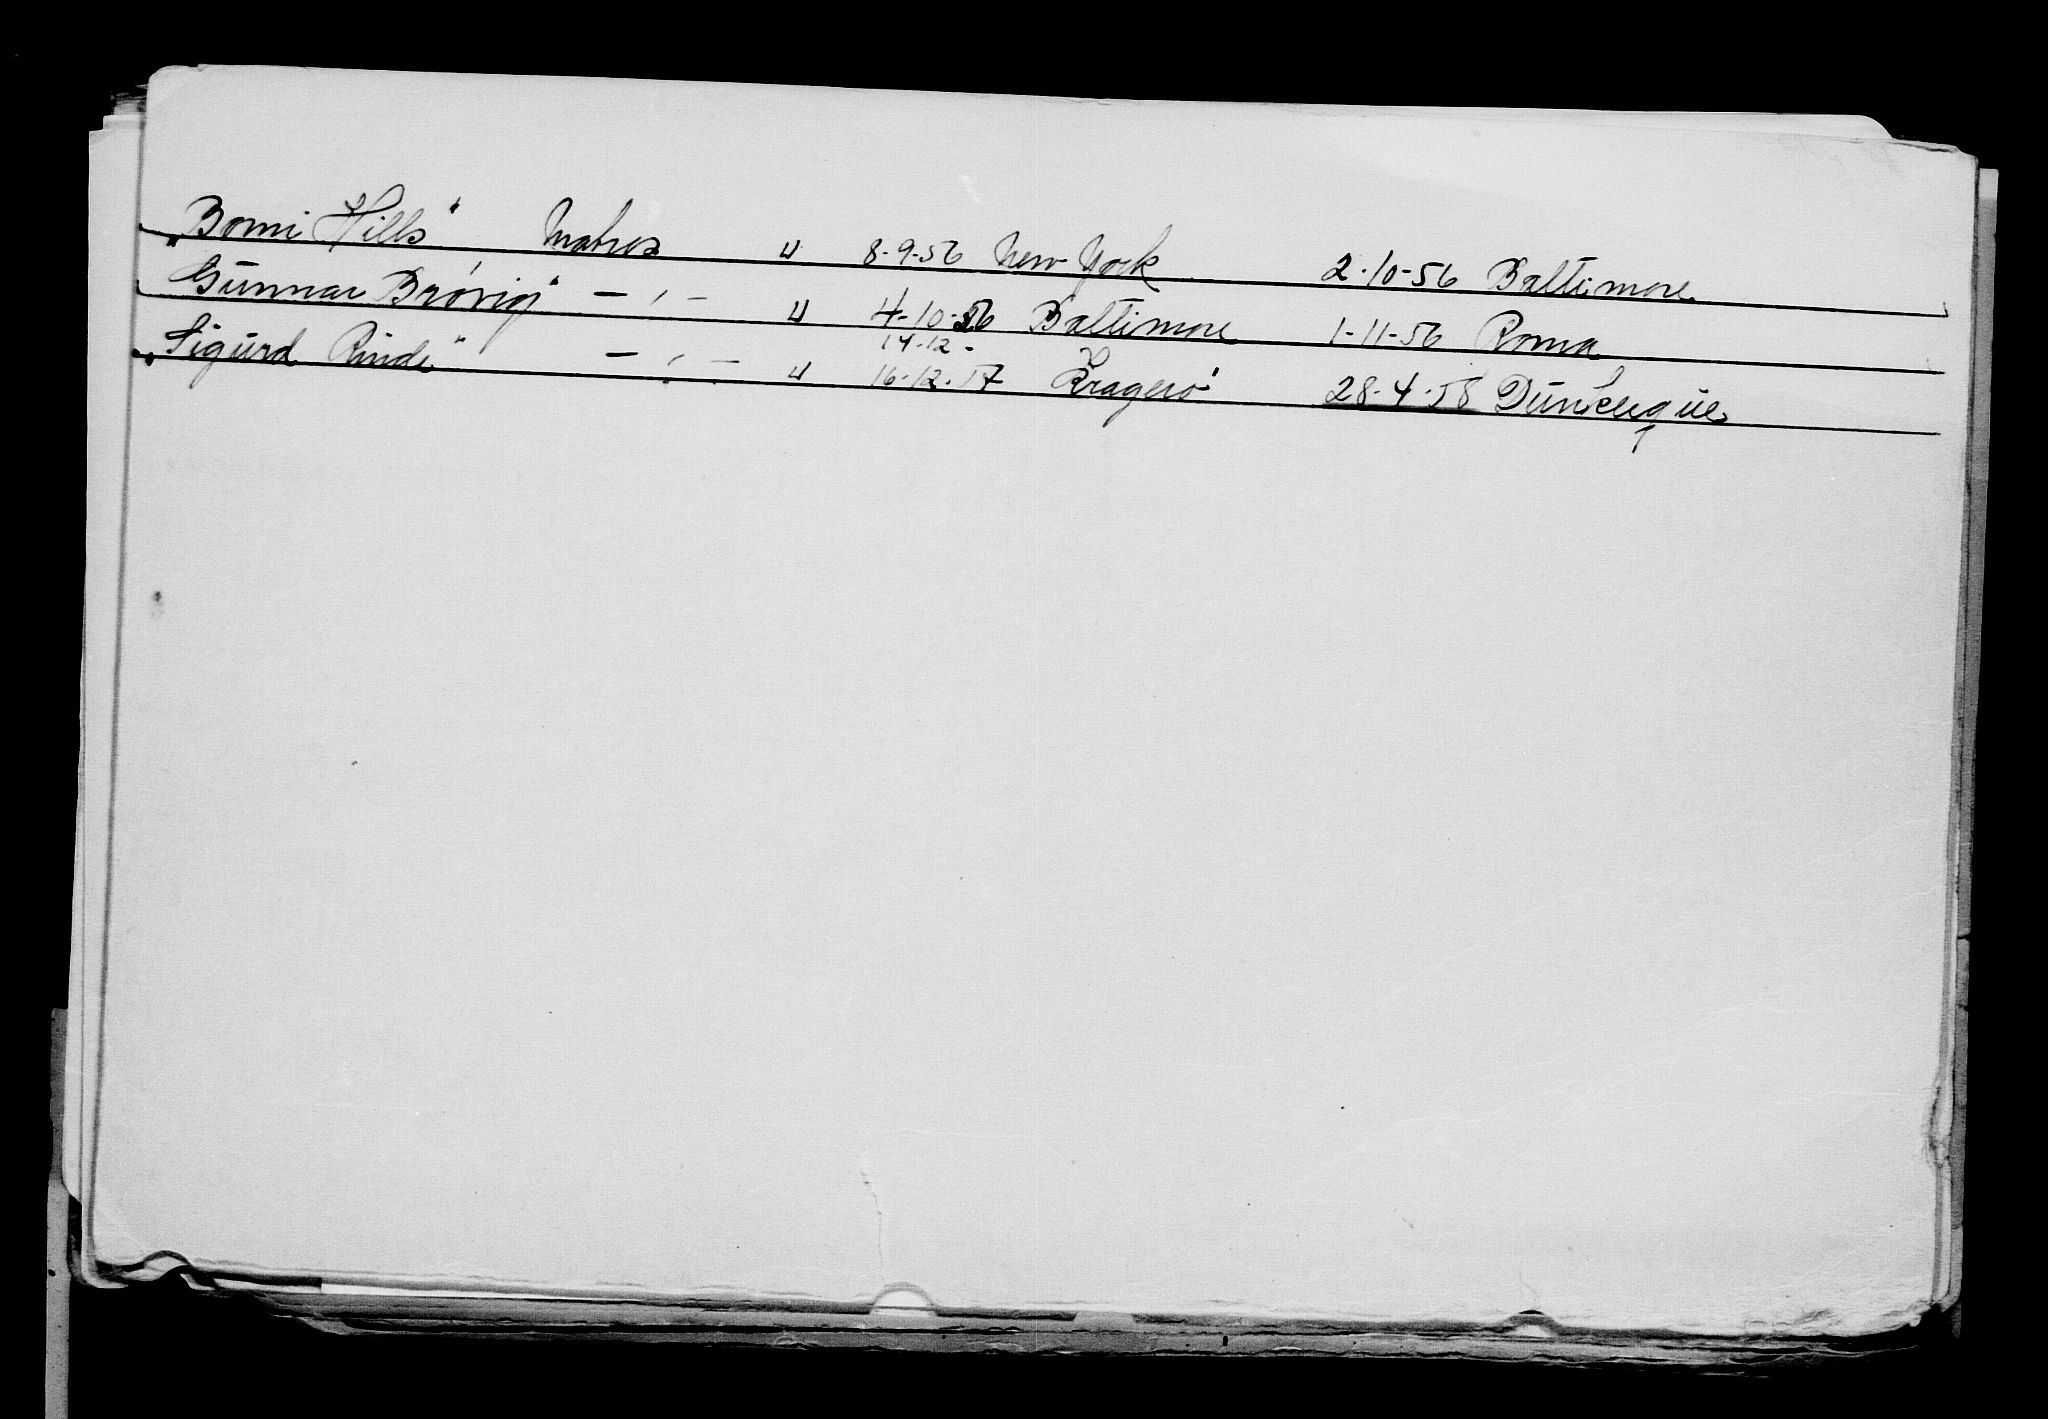 „Bomi Hills" Matros u 8-9-56 New York 2-10-56 Baltimore
Gunnar Brøvig" — , — u 4-10-56 Baltimore 1-11-56 Roma
14-12-
„Sigurd Rinde" — , — u 16-12-57 Kragerø 28-4-58 Dunkerque